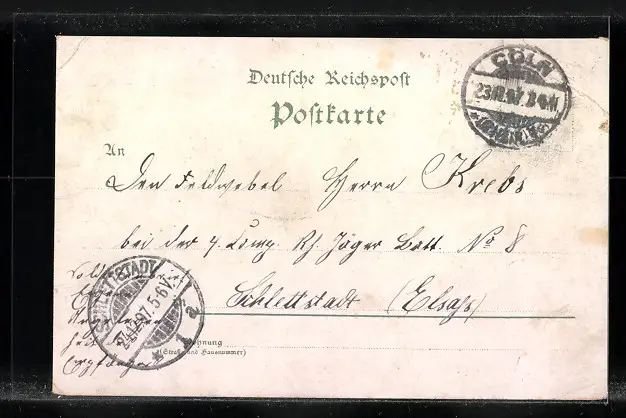 Deutsche Reichspost
Postkarte
CÖLN
23.12.97.
An
Den Feldwebel Herrn Krebs
bei der 4. Comp. Rh. Jäger Batt. No 8
SCHLETTSTADT
24.12.97. 5-6V.
Schlettstadt (Elsaß)
Empfängers
(Straße und Hausnummer)